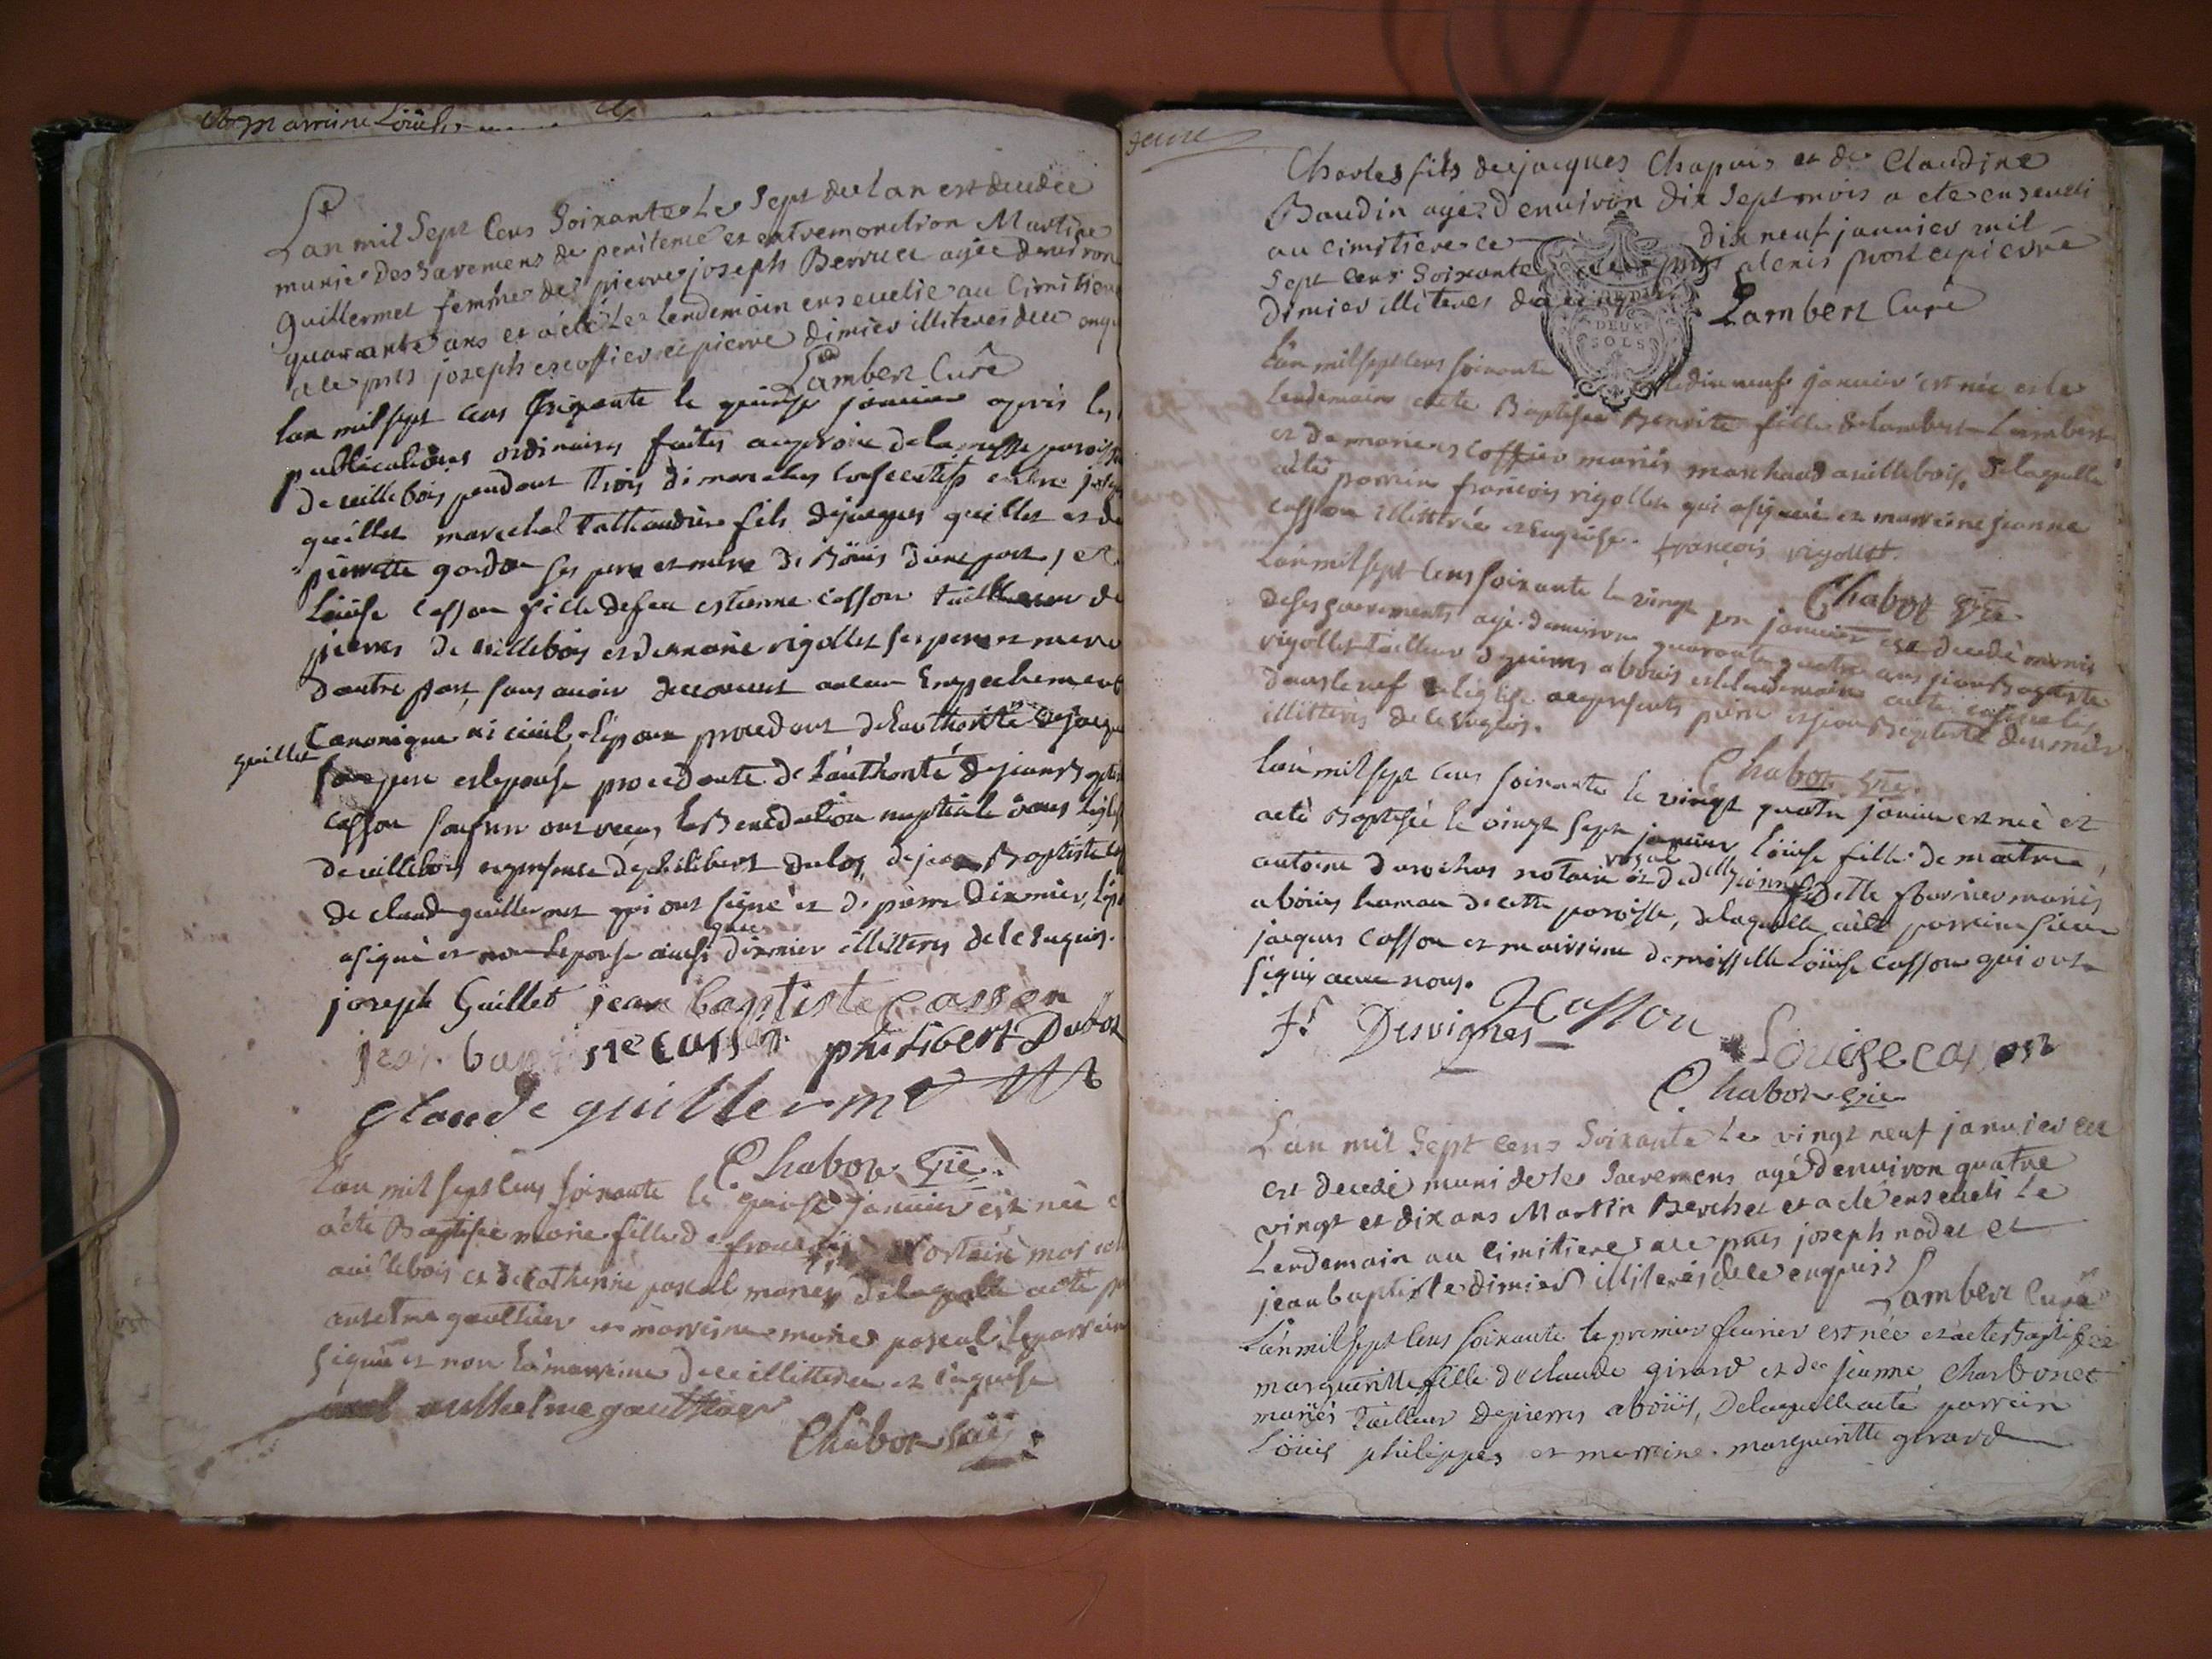 et marrine Loüise
Lan mil Sept Cens Soixante Le Sept de lan est decedee
munie des Sacremens de penitence et extremonction Martine
Guillermet femme de pierre joseph Berruet agée denviron
quarante ans et a été Le lendemain ensevelie au Cimitiere
a ce pnts joseph escoffier et pierre dimier illiteres de ce enqu
Lambert Curé
lan mil sept cens soixante le quinze janvier apres les
publications ordinaires faites au prone de la messe paroissi
de villebois pendant trois dimanches consecutifs entre joseph
guillet marechal taillandier fils de jacques guillet et de
pierrette gordon ses pere et mere de Boüis d'une part, et
Loüise Casson fille de feu estienne casson tailleur de
pierres de villebois et de marie rigollet ses pere et mere
d'autre part, sans avoir decouvert aucun Empechement
Canonique ni civil, l'epoux procedant de l'authorité de jacqu
guillet
son pere et l'epouse procedante de l'authorité de jean Baptis
casson son frere ont reçu la Benediction nuptiale dans l'eglis
de villebois en presence de philibert dubos, de jean Baptiste
de claude guillermet qui ont signé et de pierre dixmier, l'ep
a signé et non l'epouse ainsi que dixmier illitteres de ce enquis.
joseph Guillet jean baptiste casson
jean baptiste casson philibert Dubos
claude guillermet
Chabot vic.
L'an mil sept cens soixante le quinze janvier est née e
a été Baptisée marie fille de françois mar
a villebois et de Catherine pascal mariés de laquelle a été p
antelme gaulthier et marreine marie pascal, le parrein
signé et non la marreine de ce illitterée et enquise
anthelme gaulthier
Chabot vic.
deuxe
Charles fils de jacques Chapuis et de Claudine
Baudin agé d'environ dix Sept mois a ete enseveli
au cimitiere ce dix neuf janvier mil
Sept cens Soixante pnts alexis prost et pierre
dimier illiteres de ce enquis
DEUX SOLS
Lambert Curé
L'an mil sept cens soixante le dix neuf janvier est née et le
lendemain a été Baptisée Benoite fille de lambert Lambert
et de marie escoffier mariés marchand a villebois, de laquelle
a été parrein françois rigollet qui a signé et marreine jeanne
casson illitterée et enquise. françois rigollet.
Chabot vic.
L'an mil sept cens soixante le vingt janvier est decedé muni
de ses sacrements agé d'environ quarante quatre ans jean Baptiste
rigollet tailleur de pierres a bouis et le lendemain a été enseveli
dans la nef de l'eglise a ce presents pierre et jean Baptiste dixmier
illitteres de ce enquis.
Chabot vic.
L'an mil sept cens soixante le vingt quatre janvier est née et
a été Baptisée le vingt sept janvier Loüise fille de maitre
antoine desvignes notaire royal et de delle jeanne fournier mariés
a boüis hameau de cette paroisse, de laquelle a été parrein sieur
jacques Casson et marreine demoiselle Loüise Casson qui ont
signé avec nous.
Desvignes JCasson Louise casson
Chabot vic.
L'an mil Sept cens Soixante Le vingt neuf janvier est
est decedé muni de ses Sacremens agé d'environ quatre
vingt et dix ans Martin Berchet et a été enseveli Le
Lendemain au cimitiere a ce pnts joseph nodet et
jean baptiste dimier illiterés de ce enquis
Lambert Curé
L'an mil sept cens soixante le premier fevrier est née et a eté Baptisée
marguerite fille de claude girard et de jeanne Charbonet
mariés tailleur de pierres a boüis, De laquelle a été parrein
Loüis philippes et marreine marguerite girard